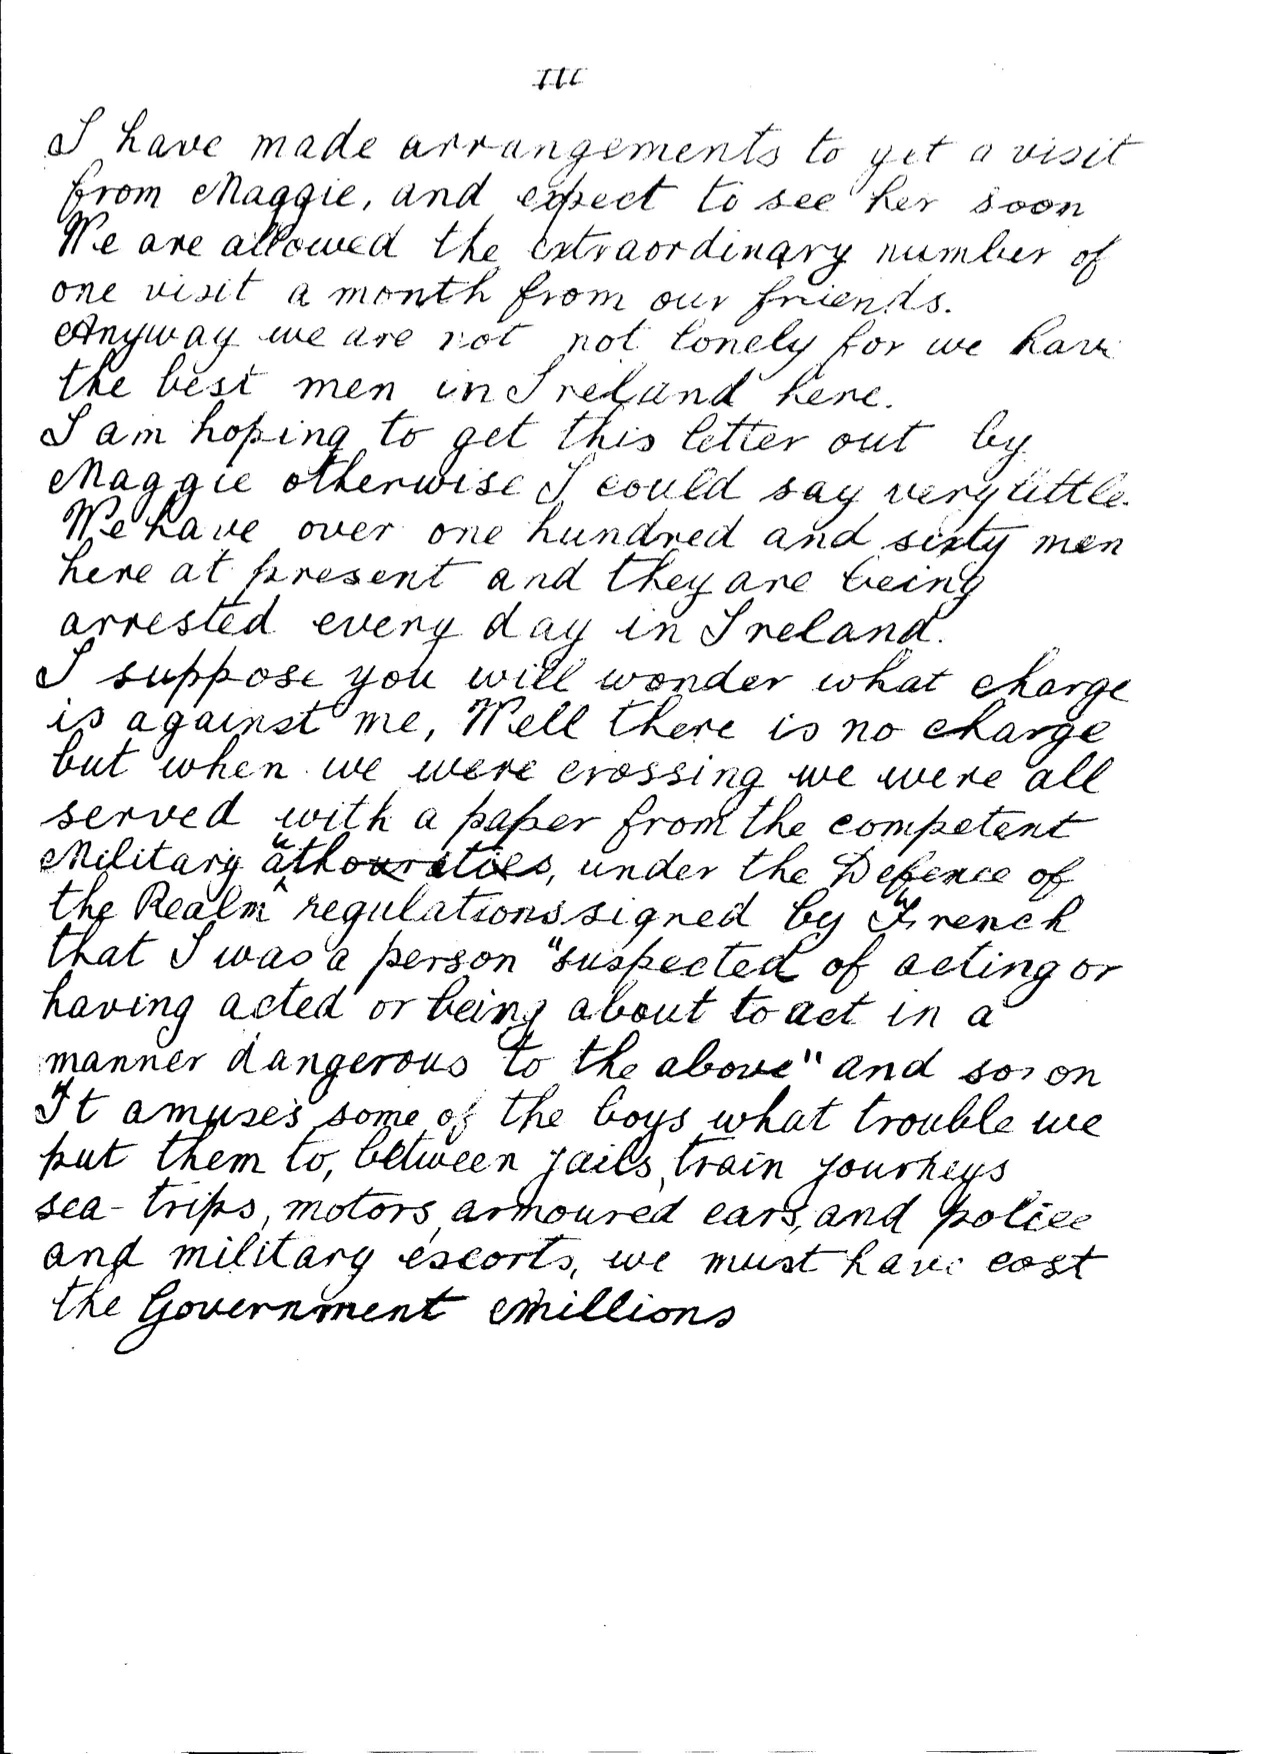 III
I have made arrangements to get a visit
from Maggie, and expect to see her soon
We are allowed the extraordinary number of
one visit a month from our friends.
Anyway we are not not lonely for we have
the best men in Ireland here.
I am hoping to get this letter out by
Maggie otherwise I could say very little.
We have over one hundred and sixty men
here at present and they are being
arrested every day in Ireland.
I suppose you will wonder what charge
is against me, Well there is no charge
but when we were crossing we were all
served with a paper from the competent
Military authourities, under the Defence of
the Realm regulations signed by French
that I was a person "suspected of acting or
having acted or being about to act in a
manner dangerous to the above" and so on
It amuses some of the boys what trouble we
put them to, between jails, train journeys
sea-trips, motors, armoured cars, and police
and military escorts, we must have cost
the Government millions